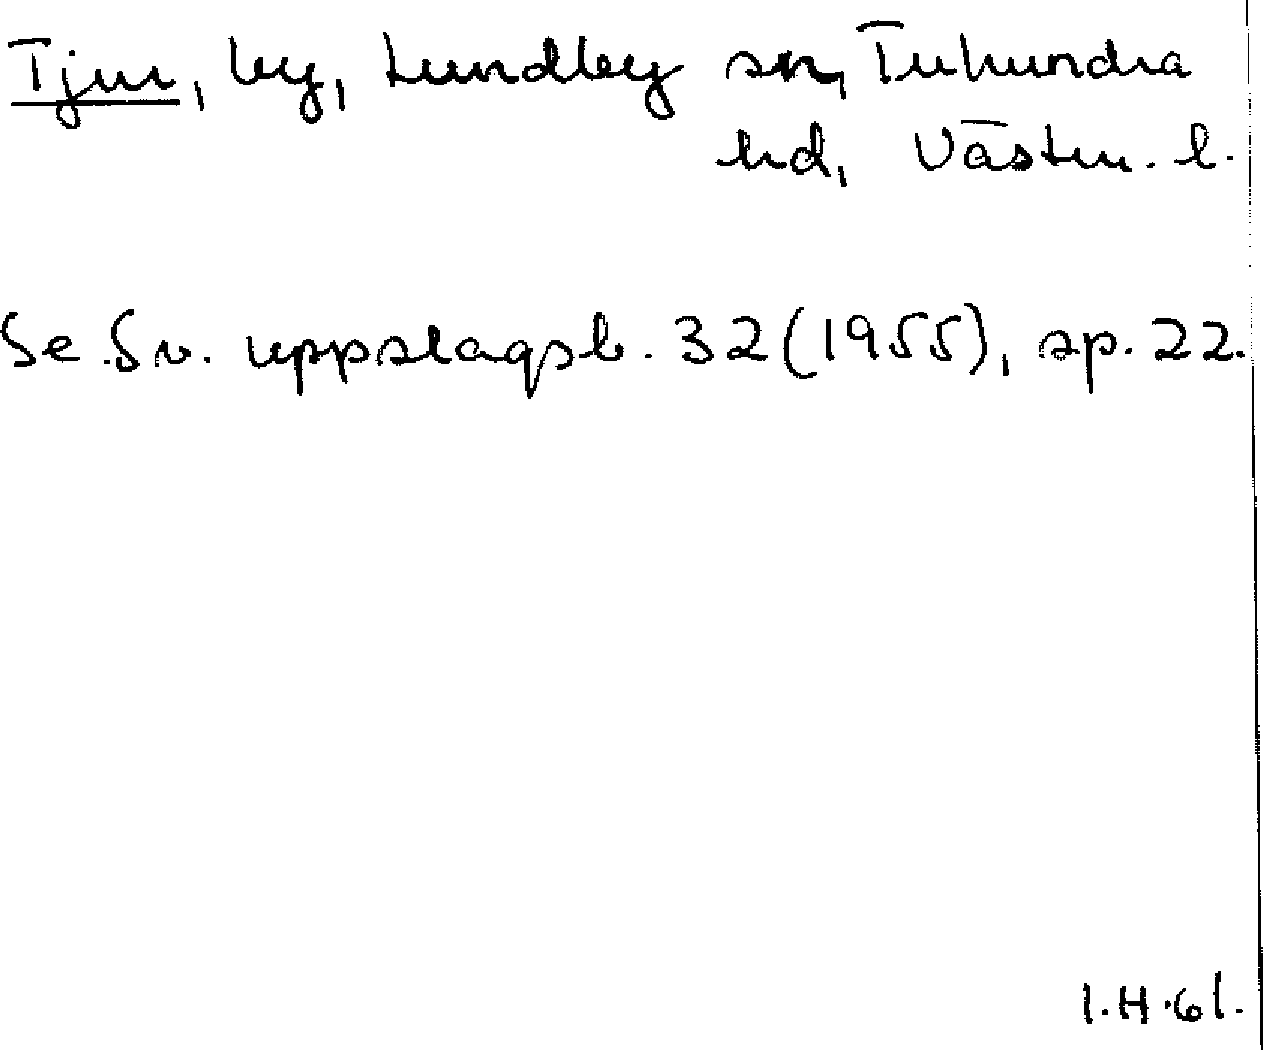 Tjur, by, Lundby sn, Tuhundra
hd, Västm. l.
Se Sv. uppslagsb. 32 (1955), sp. 22.
I.H. 61.